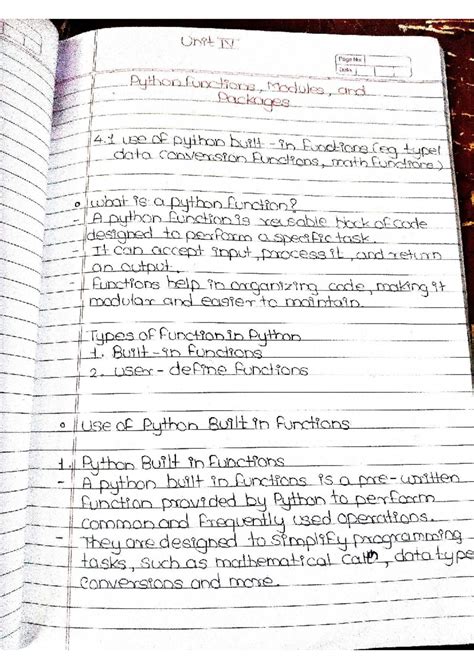 Unit IV
Page No.
Date
Python functions, Modules, and
Packages
4.1 use of python built-in functions (e.g type/
data conversion functions, math functions)
what is a python function?
- A python function is reusable block of code
designed to perform a specific task.
It can accept input, process it, and return
an output.
functions help in organizing code, making it
modular and easier to maintain.
Types of function in Python
1. Built-in functions
2. user-define functions
use of Python Built in functions
1. Python Built in functions
- A python built in functions is a pre-written
function provided by Python to perform
common and frequently used operations.
- They are designed to simplify programming
tasks, such as mathematical calⁿ, datatype
conversions and more.